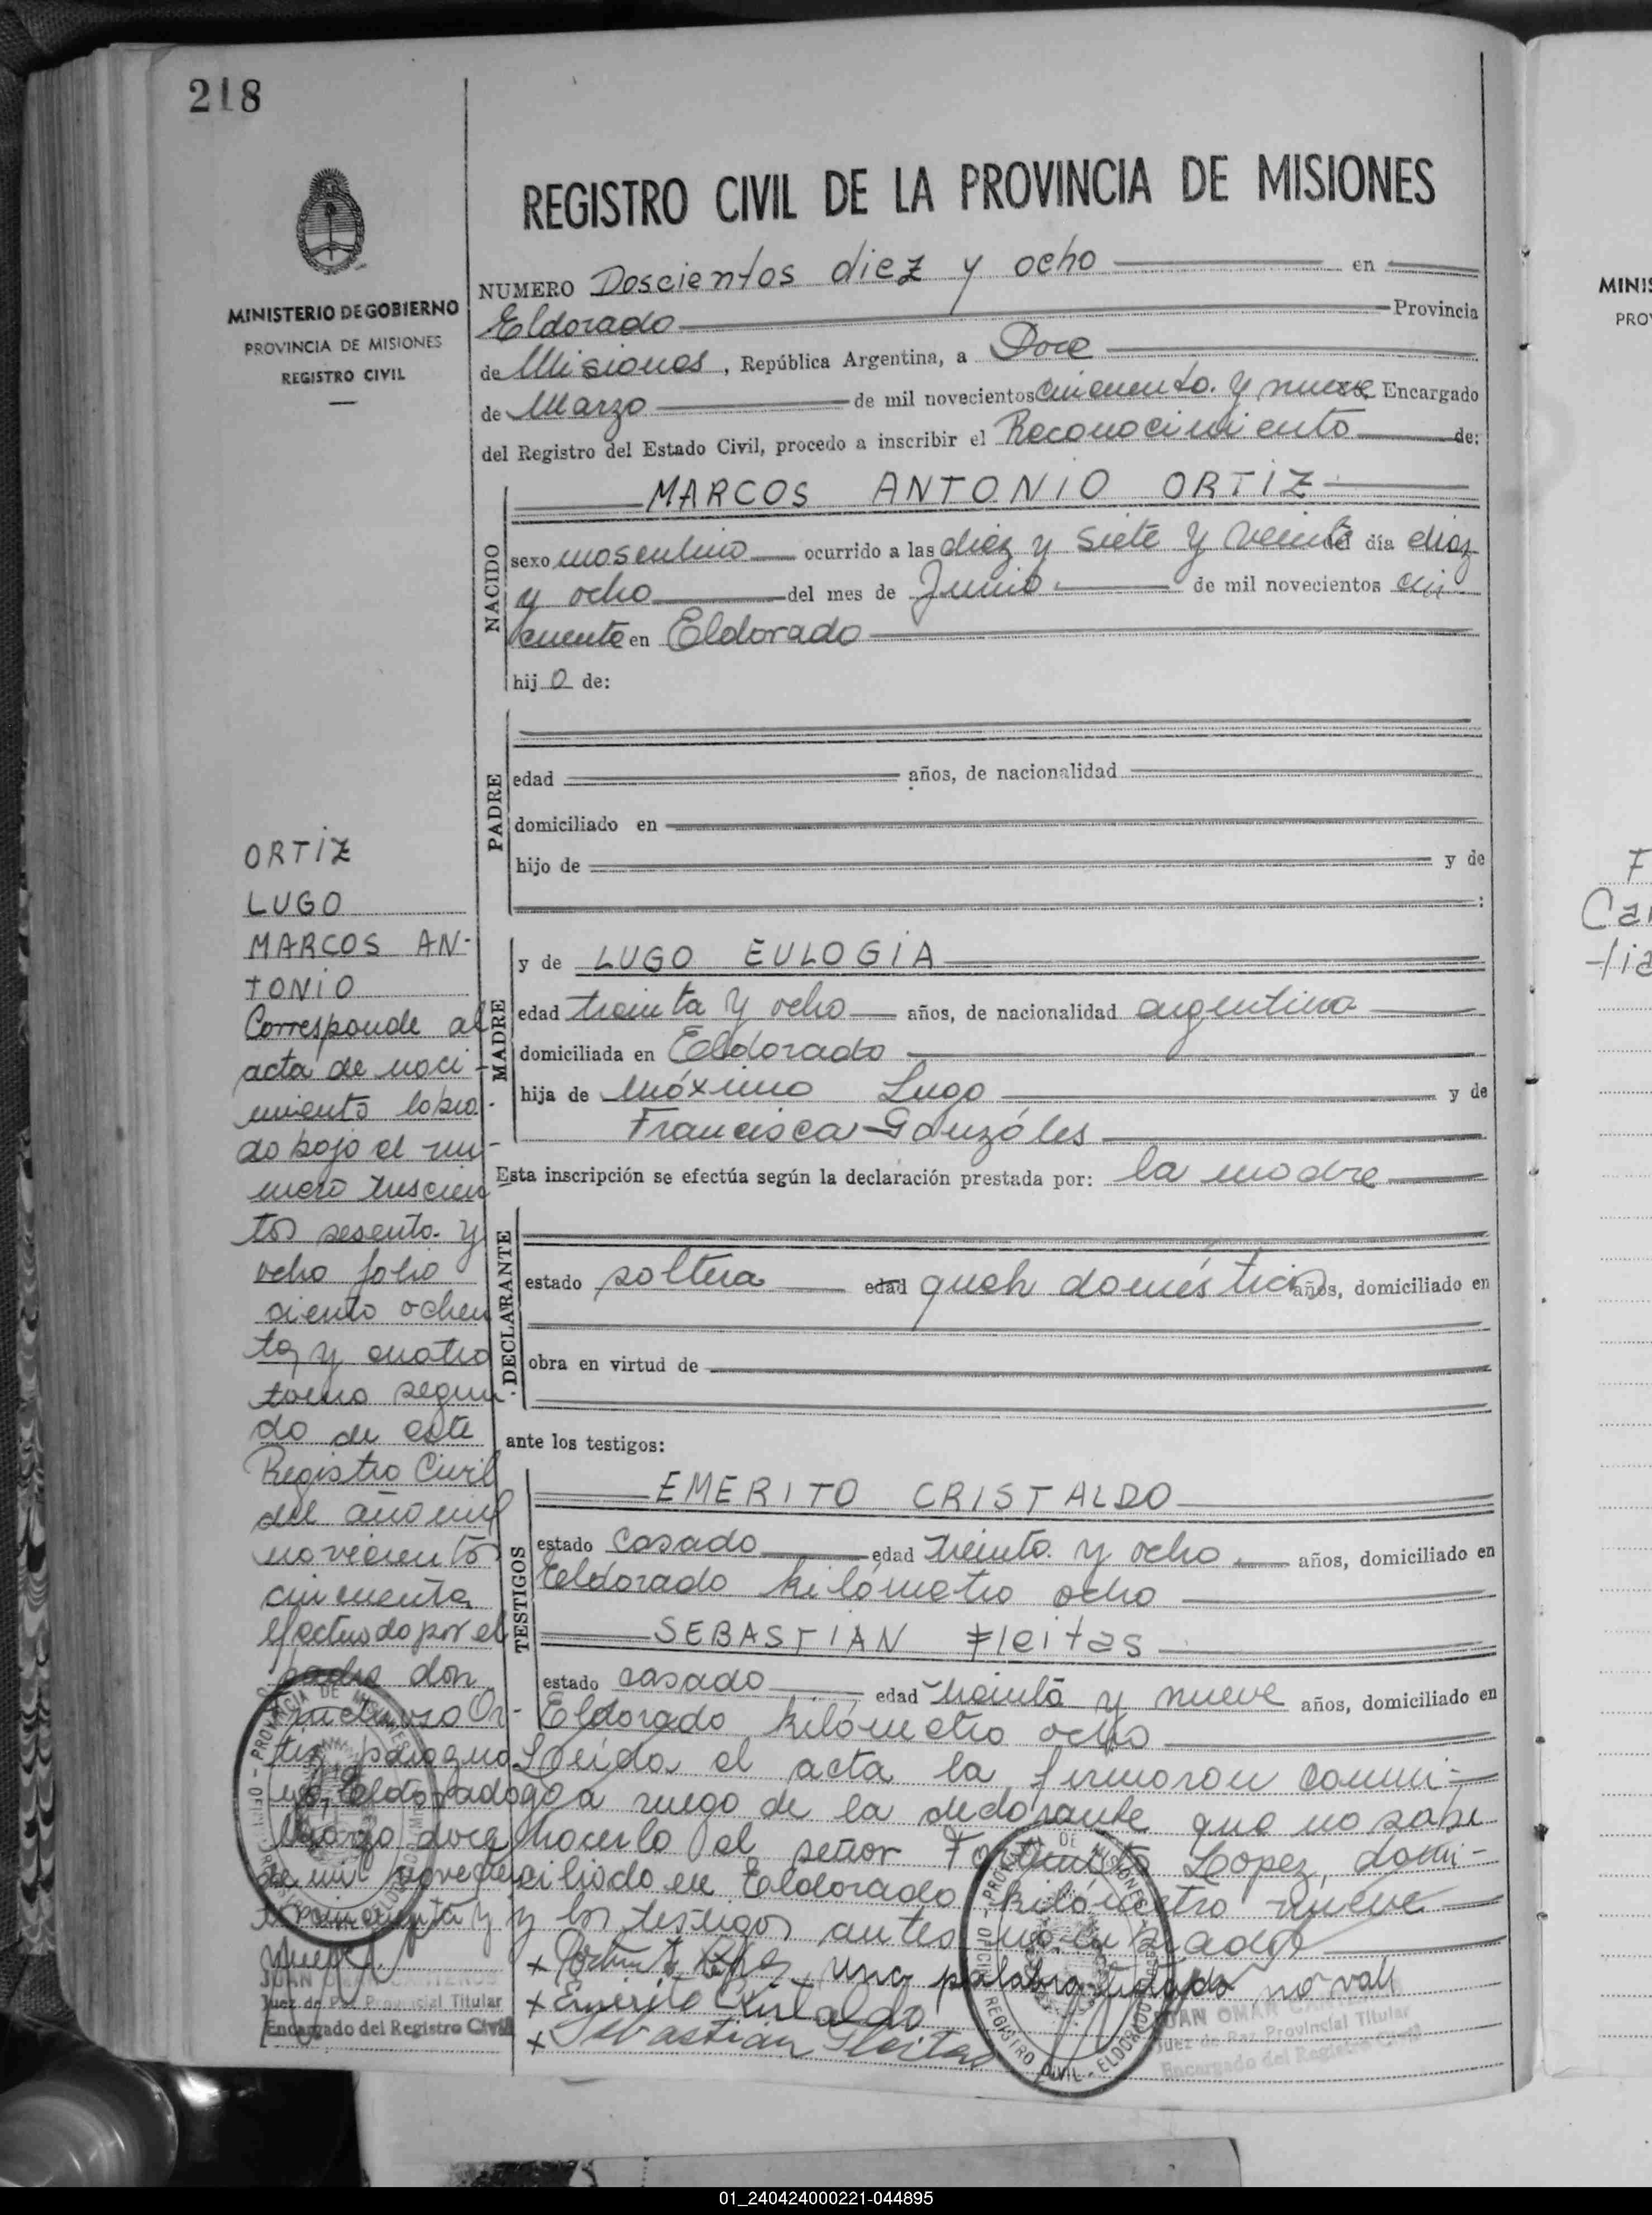 218
REGISTRO CIVIL DE LA PROVINCIA DE MISIONES
MINISTERIO DE GOBIERNO
PROVINCIA DE MISIONES
REGISTRO CIVIL
NUMERO Doscientos diez y ocho en
Eldorado Provincia
de Misiones, República Argentina, a Doce
de Marzo de mil novecientos cincuenta y nueve, Encargado
del Registro del Estado Civil, procedo a inscribir el Reconocimiento de:
NACIDO
MARCOS ANTONIO ORTIZ
sexo masculino ocurrido a las diez y siete y veinte del día diez
y ocho del mes de Junio de mil novecientos cin
cuenta en Eldorado
hijo de:
PADRE
edad años, de nacionalidad
domiciliado en
hijo de y de
:
MADRE
y de LUGO EULOGIA
edad treinta y ocho años, de nacionalidad argentina
domiciliada en Eldorado
hija de Máximo Lugo y de
Francisca Gonzáles
Esta inscripción se efectúa según la declaración prestada por: la madre
DECLARANTE
estado soltera edad domésticos años, domiciliado en
obra en virtud de
ante los testigos:
TESTIGOS
EMERITO CRISTALDO
estado casado edad treinta y ocho años, domiciliado en
Eldorado kilómetro ocho
SEBASTIAN Fleitas
estado casado edad treinta y nueve años, domiciliado en
Eldorado kilómetro ocho
Leída el acta la firmaron conmi-
go a ruego de la declarante que no sabe
hacerlo el señor Fortunato Lopez, domi-
ciliado en Eldorado kilómetro nueve
y los testigos antes
x Lopez una palabra no vale
x Emerito Cristaldo
x Sebastian Fleitas
ORTIZ
LUGO
MARCOS AN-
TONIO
Corresponde al
acta de naci
miento labra
do bajo el nú
mero trescien
tos sesenta y
ocho folio
ciento ochen
ta y cuatro
tomo segun
do de este
Registro Civil
del año mil
novecientos
cincuenta
efectuado por el
padre don
Or-
tiz paragua
yo, Eldorado
Marzo doce
de mil novecien
tos cincuenta y
nueve.
JUAN OMAR
Juez de Paz Provincial Titular
Encargado del Registro Civil
OFICINA REGISTRO CIVIL - ELDORADO
PROVINCIA DE MISIONES
JUAN OMAR
Juez de Paz Provincial Titular
Encargado del Registro Civil
MINIS
PRO
F
Car
tia
01_240424000221-044895